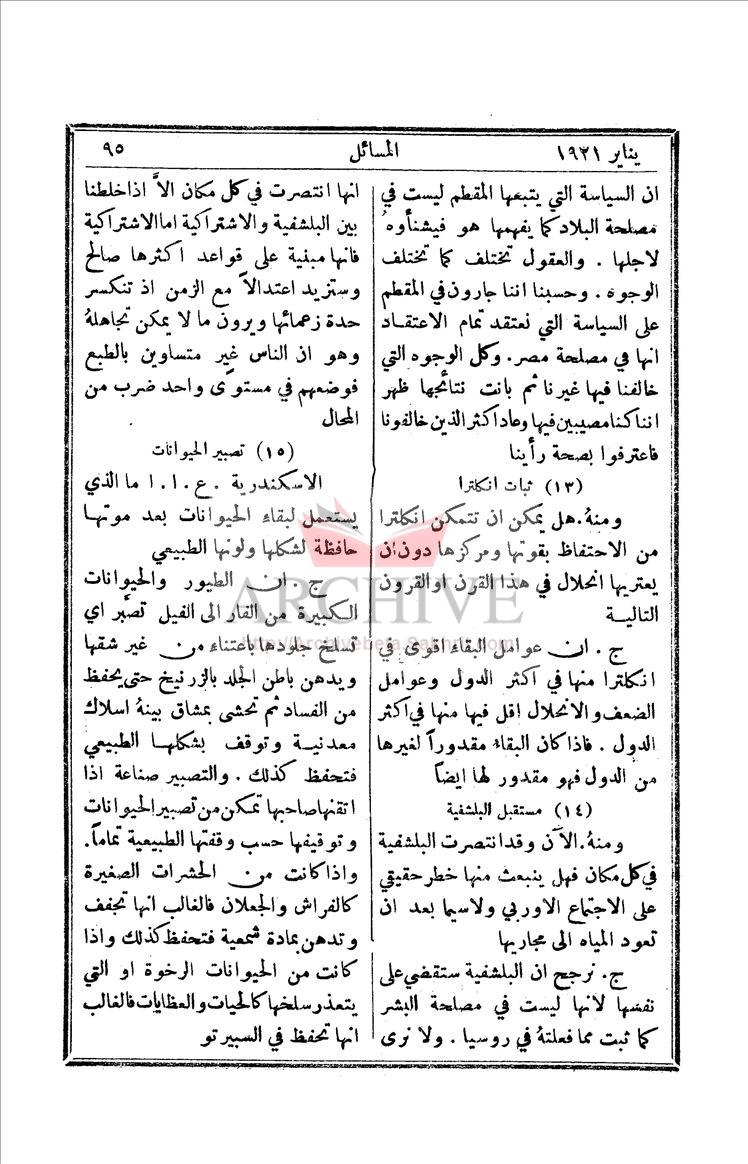 يناير ١٩٢١
المسائل
٩٥
ان السياسة التي يتبعها المقطم ليست في
مصلحة البلاد كما يفهمها هو فيشنأوهُ
لاجلها . والعقول تختلف كما تختلف
الوجوه . وحسبنا اننا جارون في المقطم
على السياسة التي نعتقد تمام الاعتقاد
انها في مصلحة مصر. وكل الوجوه التي
خالفنا فيها غيرنا ثم بانت نتائجها ظهر
اننا كنا مصيبين فيها وعاد اكثر الذين خالفونا
فاعترفوا بصحة رأينا
(١٣) ثبات انكلترا
ومنهُ. هل يمكن ان تتمكن انكلترا
من الاحتفاظ بقوتها ومركزها دون ان
يعتريها انحلال في هذا القرن او القرون
التالية
ج . ان عوامل البقاء اقوى في
انكلترا منها في اكثر الدول وعوامل
الضعف والانحلال اقل فيها منها في اكثر
الدول . فاذا كان البقاء مقدوراً لغيرها
من الدول فهو مقدور لها ايضاً
(١٤) مستقبل البلشفية
ومنهُ. الآن وقد انتصرت البلشفية
في كل مكان فهل ينبعث منها خطر حقيقي
على الاجتماع الاوربي ولاسيما بعد ان
تعود المياه الى مجاريها
ج. نرجح ان البلشفية ستقضي على
نفسها لانها ليست في مصلحة البشر
كما ثبت مما فعلتهُ في روسيا . ولا نرى
انها انتصرت في كل مكان الاَّ اذا خلطنا
بين البلشفية والاشتراكية اما الاشتراكية
فانها مبنية على قواعد اكثرها صالح
وستزيد اعتدالاً مع الزمن اذ تنكسر
حدة زعمائها ويرون ما لا يمكن تجاهلهُ
وهو ان الناس غير متساوين بالطبع
فوضعهم في مستوًى واحد ضرب من
المحال
(١٥) تصبير الحيوانات
الاسكندرية . ع . ا . ا ما الذي
يستعمل لبقاء الحيوانات بعد موتها
حافظة لشكلها ولونها الطبيعي
ج . ان الطيور والحيوانات
الكبيرة من الفار الى الفيل تصبَّر اي
تسلخ جلودها باعتناء من غير شقها
ويدهن باطن الجلد بالزرنيخ حتى يحفظ
من الفساد ثم تحشى بمشاق بينهُ اسلاك
معدنية وتوقف بشكلها الطبيعي
فتحفظ كذلك . والتصبير صناعة اذا
اتقنها صاحبها تمكن من تصبير الحيوانات
وتوقيفها حسب وقفتها الطبيعية تماماً.
واذا كانت من الحشرات الصغيرة
كالفراش والجعلان فالغالب انها تجفف
وتدهن بمادة شمعية فتحفظ كذلك واذا
كانت من الحيوانات الرخوة او التي
يتعذر سلخها كالحيات والعظايات فالغالب
انها تحفظ في السبيرتو
ARCHIVE
http://Archivebeta.Sakhrit.com